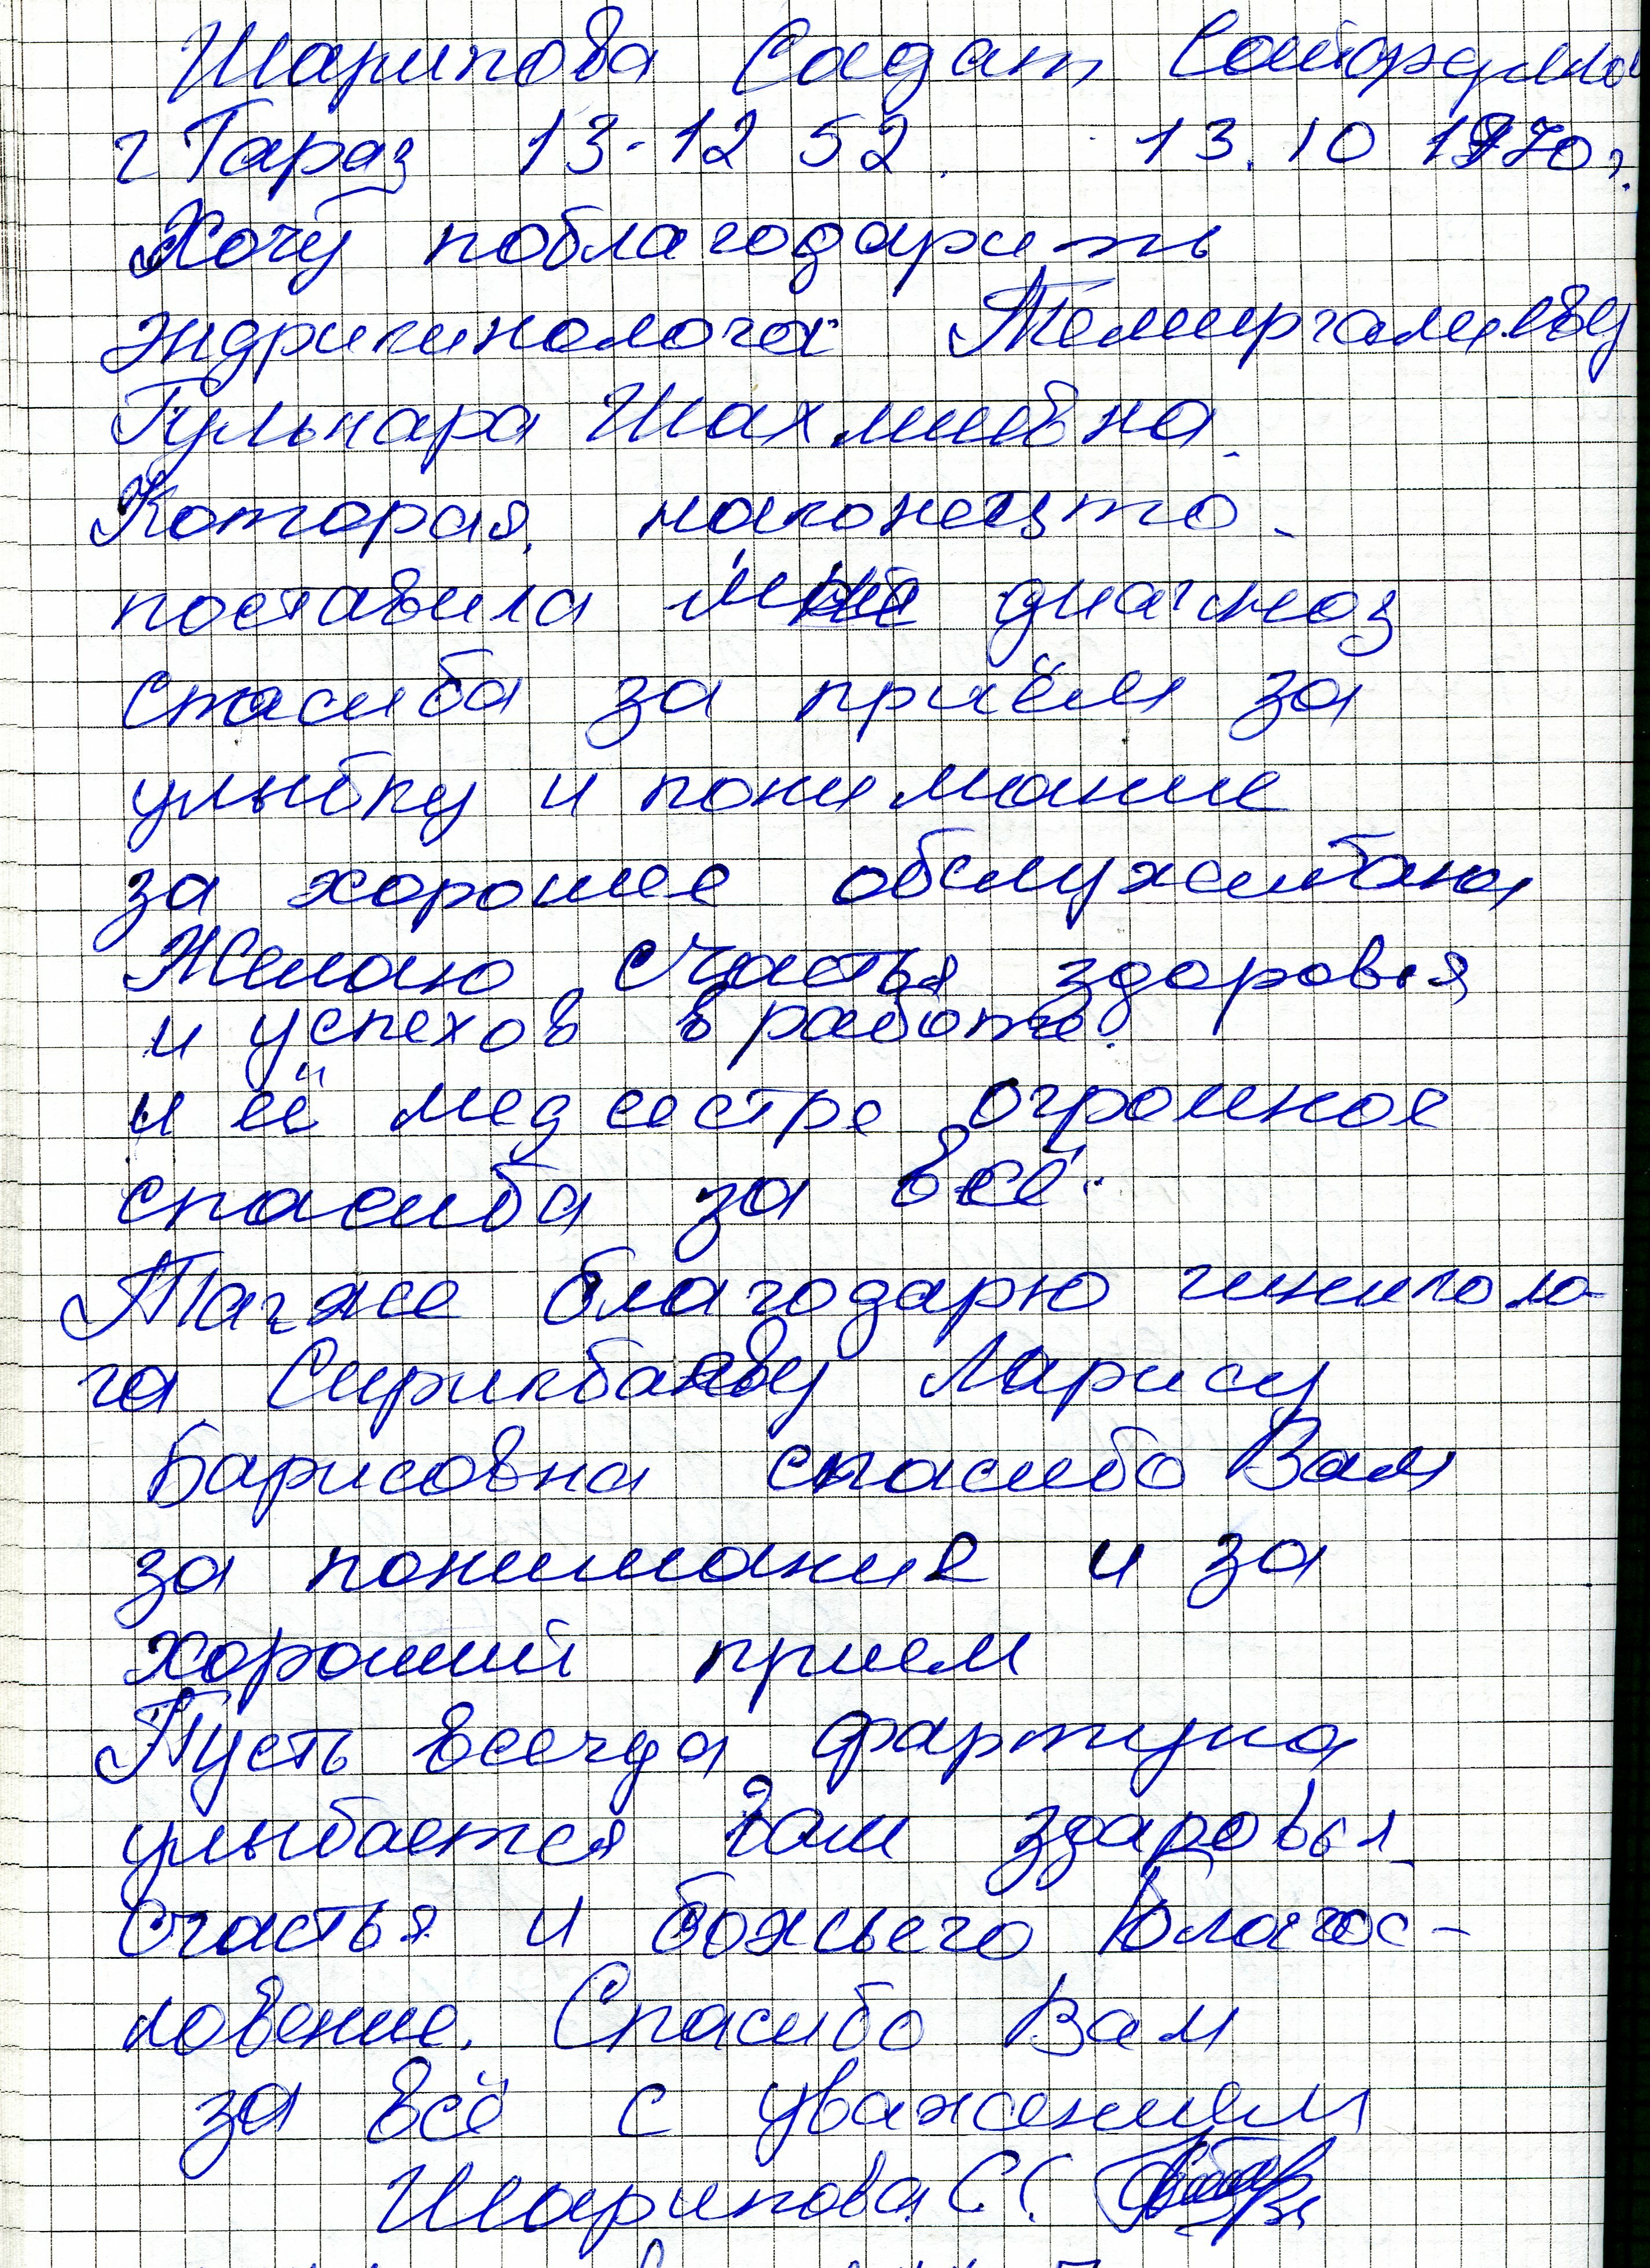 Шарипова Садат
г Тараз 13-12 52. 13.10 1970г.
Хочу поблагодарить
эндрикинолога Темиргалиеву
Гульнара Шахмиевна.
Которая, наконецто
поставила мне диагноз
спасиба за приём за
улыбку и понимание
за хорошее обслуживани
Желаю счастья здоровья
и успехов в работе.
и её мед сестре огромное
спасиба за всё.
Также благодарю гениколо-
га Сирикбаеву Ларису
Барисовна спасибо Вам
за понимание и за
хороший прием
Пусть всегда фартуна
улыбается Вам здаровья
счастья и божьего благос-
ловение. Спасибо Вам
за всё с уважением
Шарипова С С